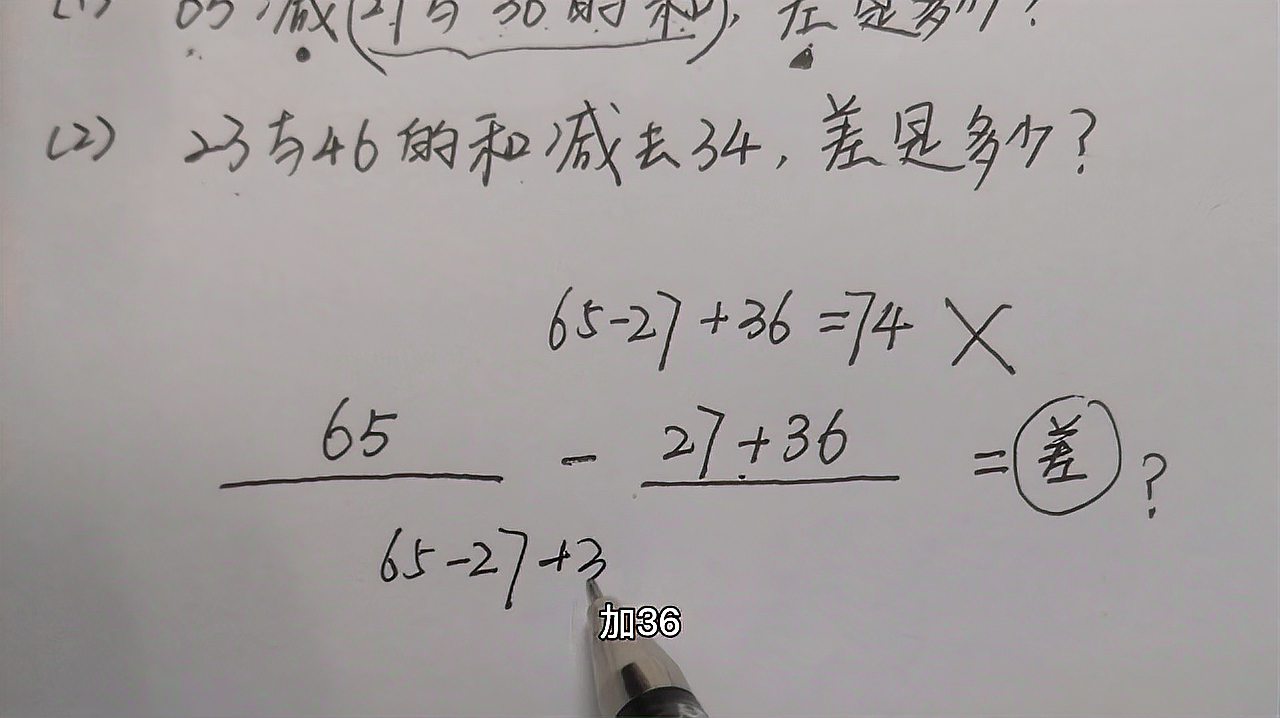 (1) 65减(27与36的和),差是多少?
(2) 23与46的和减去34,差是多少?
65-27+36=74 X
65 - 27+36 =差?
65-27+3
加36